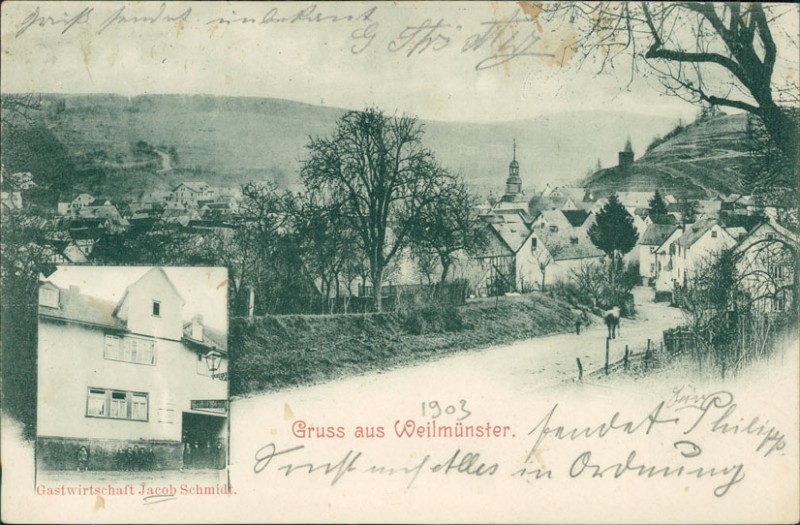 Gruß sendet unbekant
1903
Gruss aus Weilmünster.
sendet Philipp
Sonst ist Alles in Ordnung
Gastwirtschaft Jacob Schmidt.